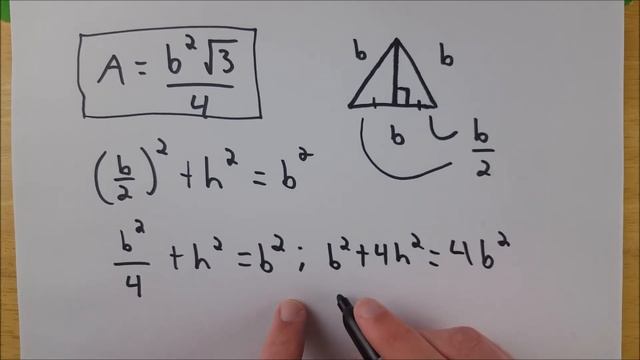 A = b²√3/4
b b
b b/2
(b/2)² + h² = b²
b²/4 + h² = b² ; b² + 4h² = 4b²